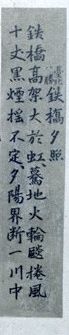 鉄橋夕照
鉄橋高架大於虹、驀地火輪颷捲風
十丈黒煙揺不定、夕陽界断一川中